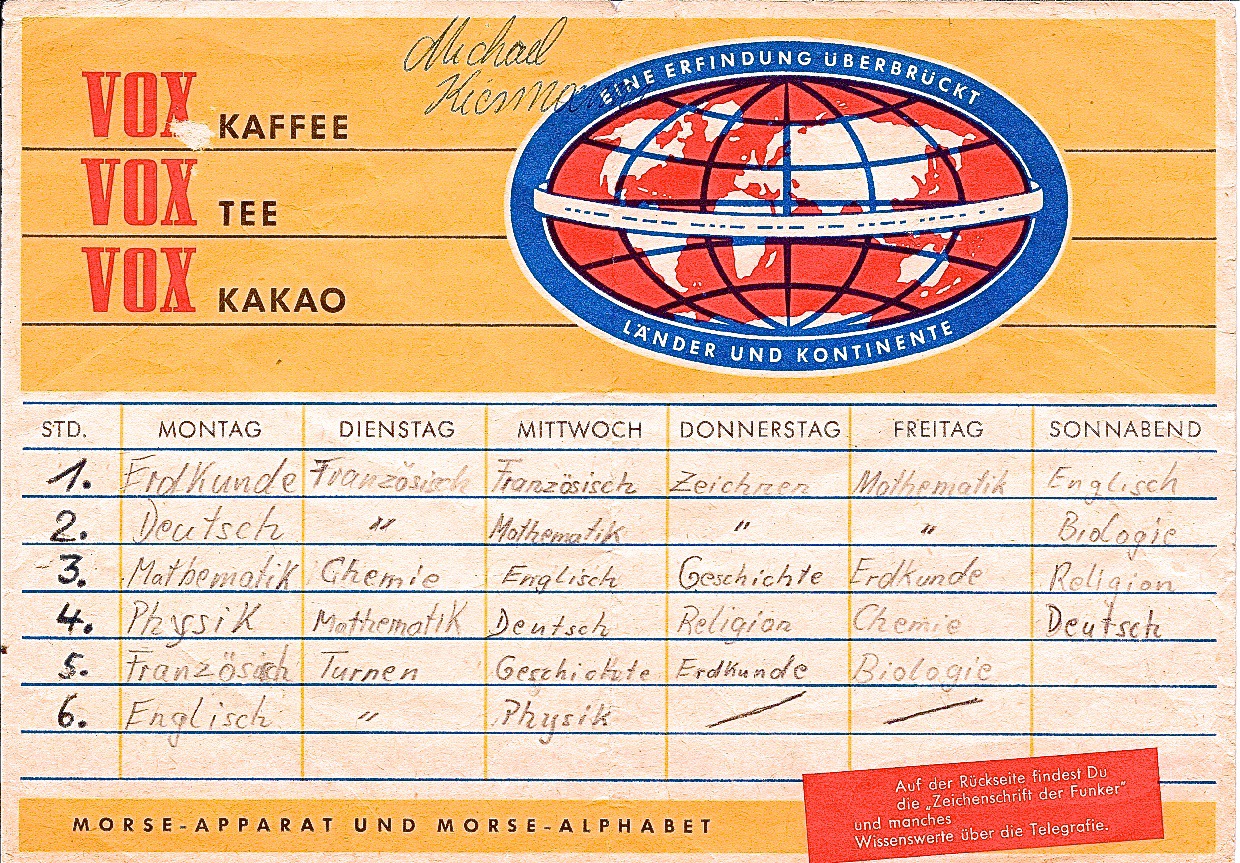 Michael
VOX KAFFEE
VOX TEE
VOX KAKAO
EINE ERFINDUNG ÜBERBRÜCKT
LÄNDER UND KONTINENTE
STD. MONTAG DIENSTAG MITTWOCH DONNERSTAG FREITAG SONNABEND
1. Erdkunde Französisch Französisch Zeichnen Mathematik Englisch
2. Deutsch " Mathematik " " Biologie
3. Mathematik Chemie Englisch Geschichte Erdkunde Religion
4. Physik Mathematik Deutsch Religion Chemie Deutsch
5. Französisch Turnen Geschichte Erdkunde Biologie
6. Englisch " Physik / /
Auf der Rückseite findest Du
die „Zeichenschrift der Funker"
und manches
Wissenswerte über die Telegrafie.
MORSE-APPARAT UND MORSE-ALPHABET